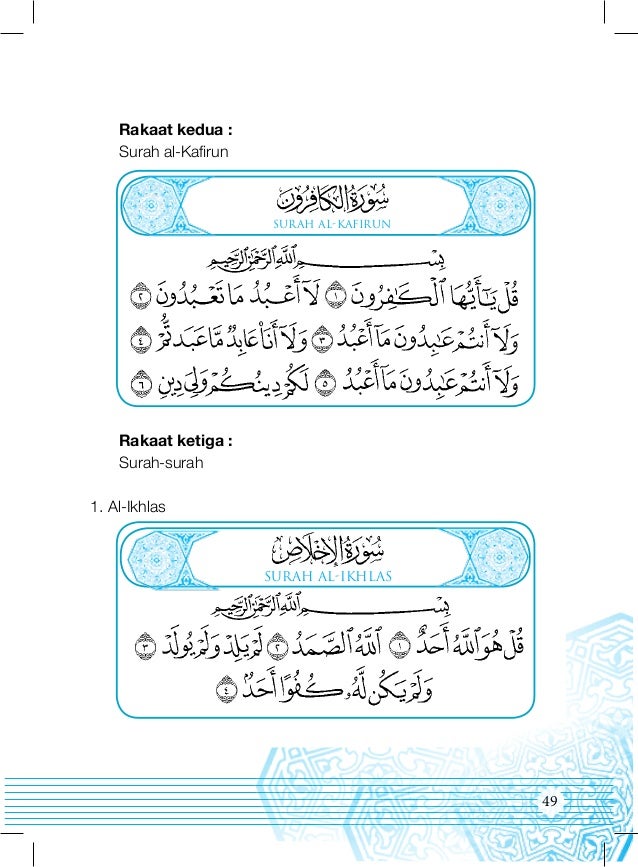 Rakaat kedua :
Surah al-Kafirun
سُورَةُ الكَافِرُونَ
SURAH AL-KAFIRUN
بِسْمِ ٱللَّهِ ٱلرَّحْمَٰنِ ٱلرَّحِيمِ
قُلْ يَٰٓأَيُّهَا ٱلْكَٰفِرُونَ ١ لَآ أَعْبُدُ مَا تَعْبُدُونَ ٢
وَلَآ أَنتُمْ عَٰبِدُونَ مَآ أَعْبُدُ ٣ وَلَآ أَنَا۠ عَابِدٌ مَّا عَبَدتُّمْ ٤
وَلَآ أَنتُمْ عَٰبِدُونَ مَآ أَعْبُدُ ٥ لَكُمْ دِينُكُمْ وَلِىَ دِينِ ٦
Rakaat ketiga :
Surah-surah
1. Al-Ikhlas
سُورَةُ الإِخْلَاصِ
SURAH AL-IKHLAS
بِسْمِ ٱللَّهِ ٱلرَّحْمَٰنِ ٱلرَّحِيمِ
قُلْ هُوَ ٱللَّهُ أَحَدٌ ١ ٱللَّهُ ٱلصَّمَدُ ٢ لَمْ يَلِدْ وَلَمْ يُولَدْ ٣
وَلَمْ يَكُن لَّهُۥ كُفُوًا أَحَدٌۢ ٤
49